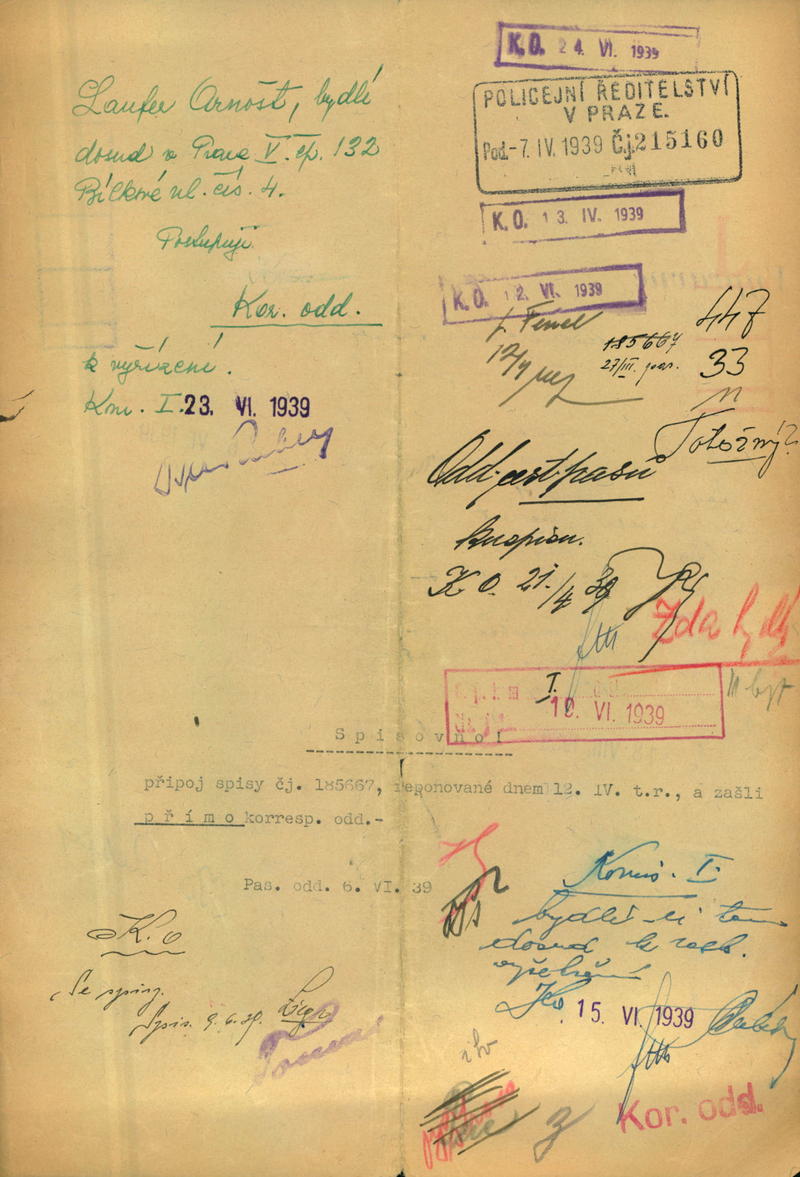 Laufer Arnošt, bydlí
dosud v Praze V. čp. 132
Bílkově ul. čís. 4.
Postupuji
Kor. odd.
k vyřízení.
Kom. I. 23. VI. 1939
K. O. 24. VI. 1939
POLICEJNÍ ŘEDITELSTVÍ
V PRAZE.
Pod. -7. IV. 1939 Čj. 215160
K. O. 13. IV. 1939
K. O. 12. VI. 1939
447
185667
27/III. pas.
33
Totožný?
Odd. cest. pasů
K. O. 21./4 39
Zda bydlí
I.
19. VI. 1939
Spisovnoi
připoj spisy čj. 185667, reponované dnem 12. IV. t.r., a zašli
přímo korresp. odd.-
Pas. odd. 6. VI. 39
K. O
Se spisy.
Spis. 9.6.39.
Komis. I.
bydlí-li tam
dosud
15. VI. 1939
Kor. odd.